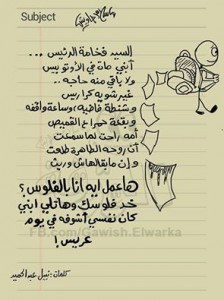 Subject
السيد فخامة الرئيس ...
أبني مات في الأوتوبيس
ولا باقي منه حاجه ..
غير شوية كراريس
وشنطة فاضيه وساعة واقفه
وبقعة حمرا ع القميص
أمه راحت لما سمعت
أن روحه الطاهرة طلعت
وإن مابقالهاش وريث
هاعمل ايه انا بالفلوس؟
خد فلوسك وهاتلي ابني
كان نفسي أشوفه في يوم
عريس!
FB.com/Gawish.Elwarka
كلمات: نبيل عبد الحميد